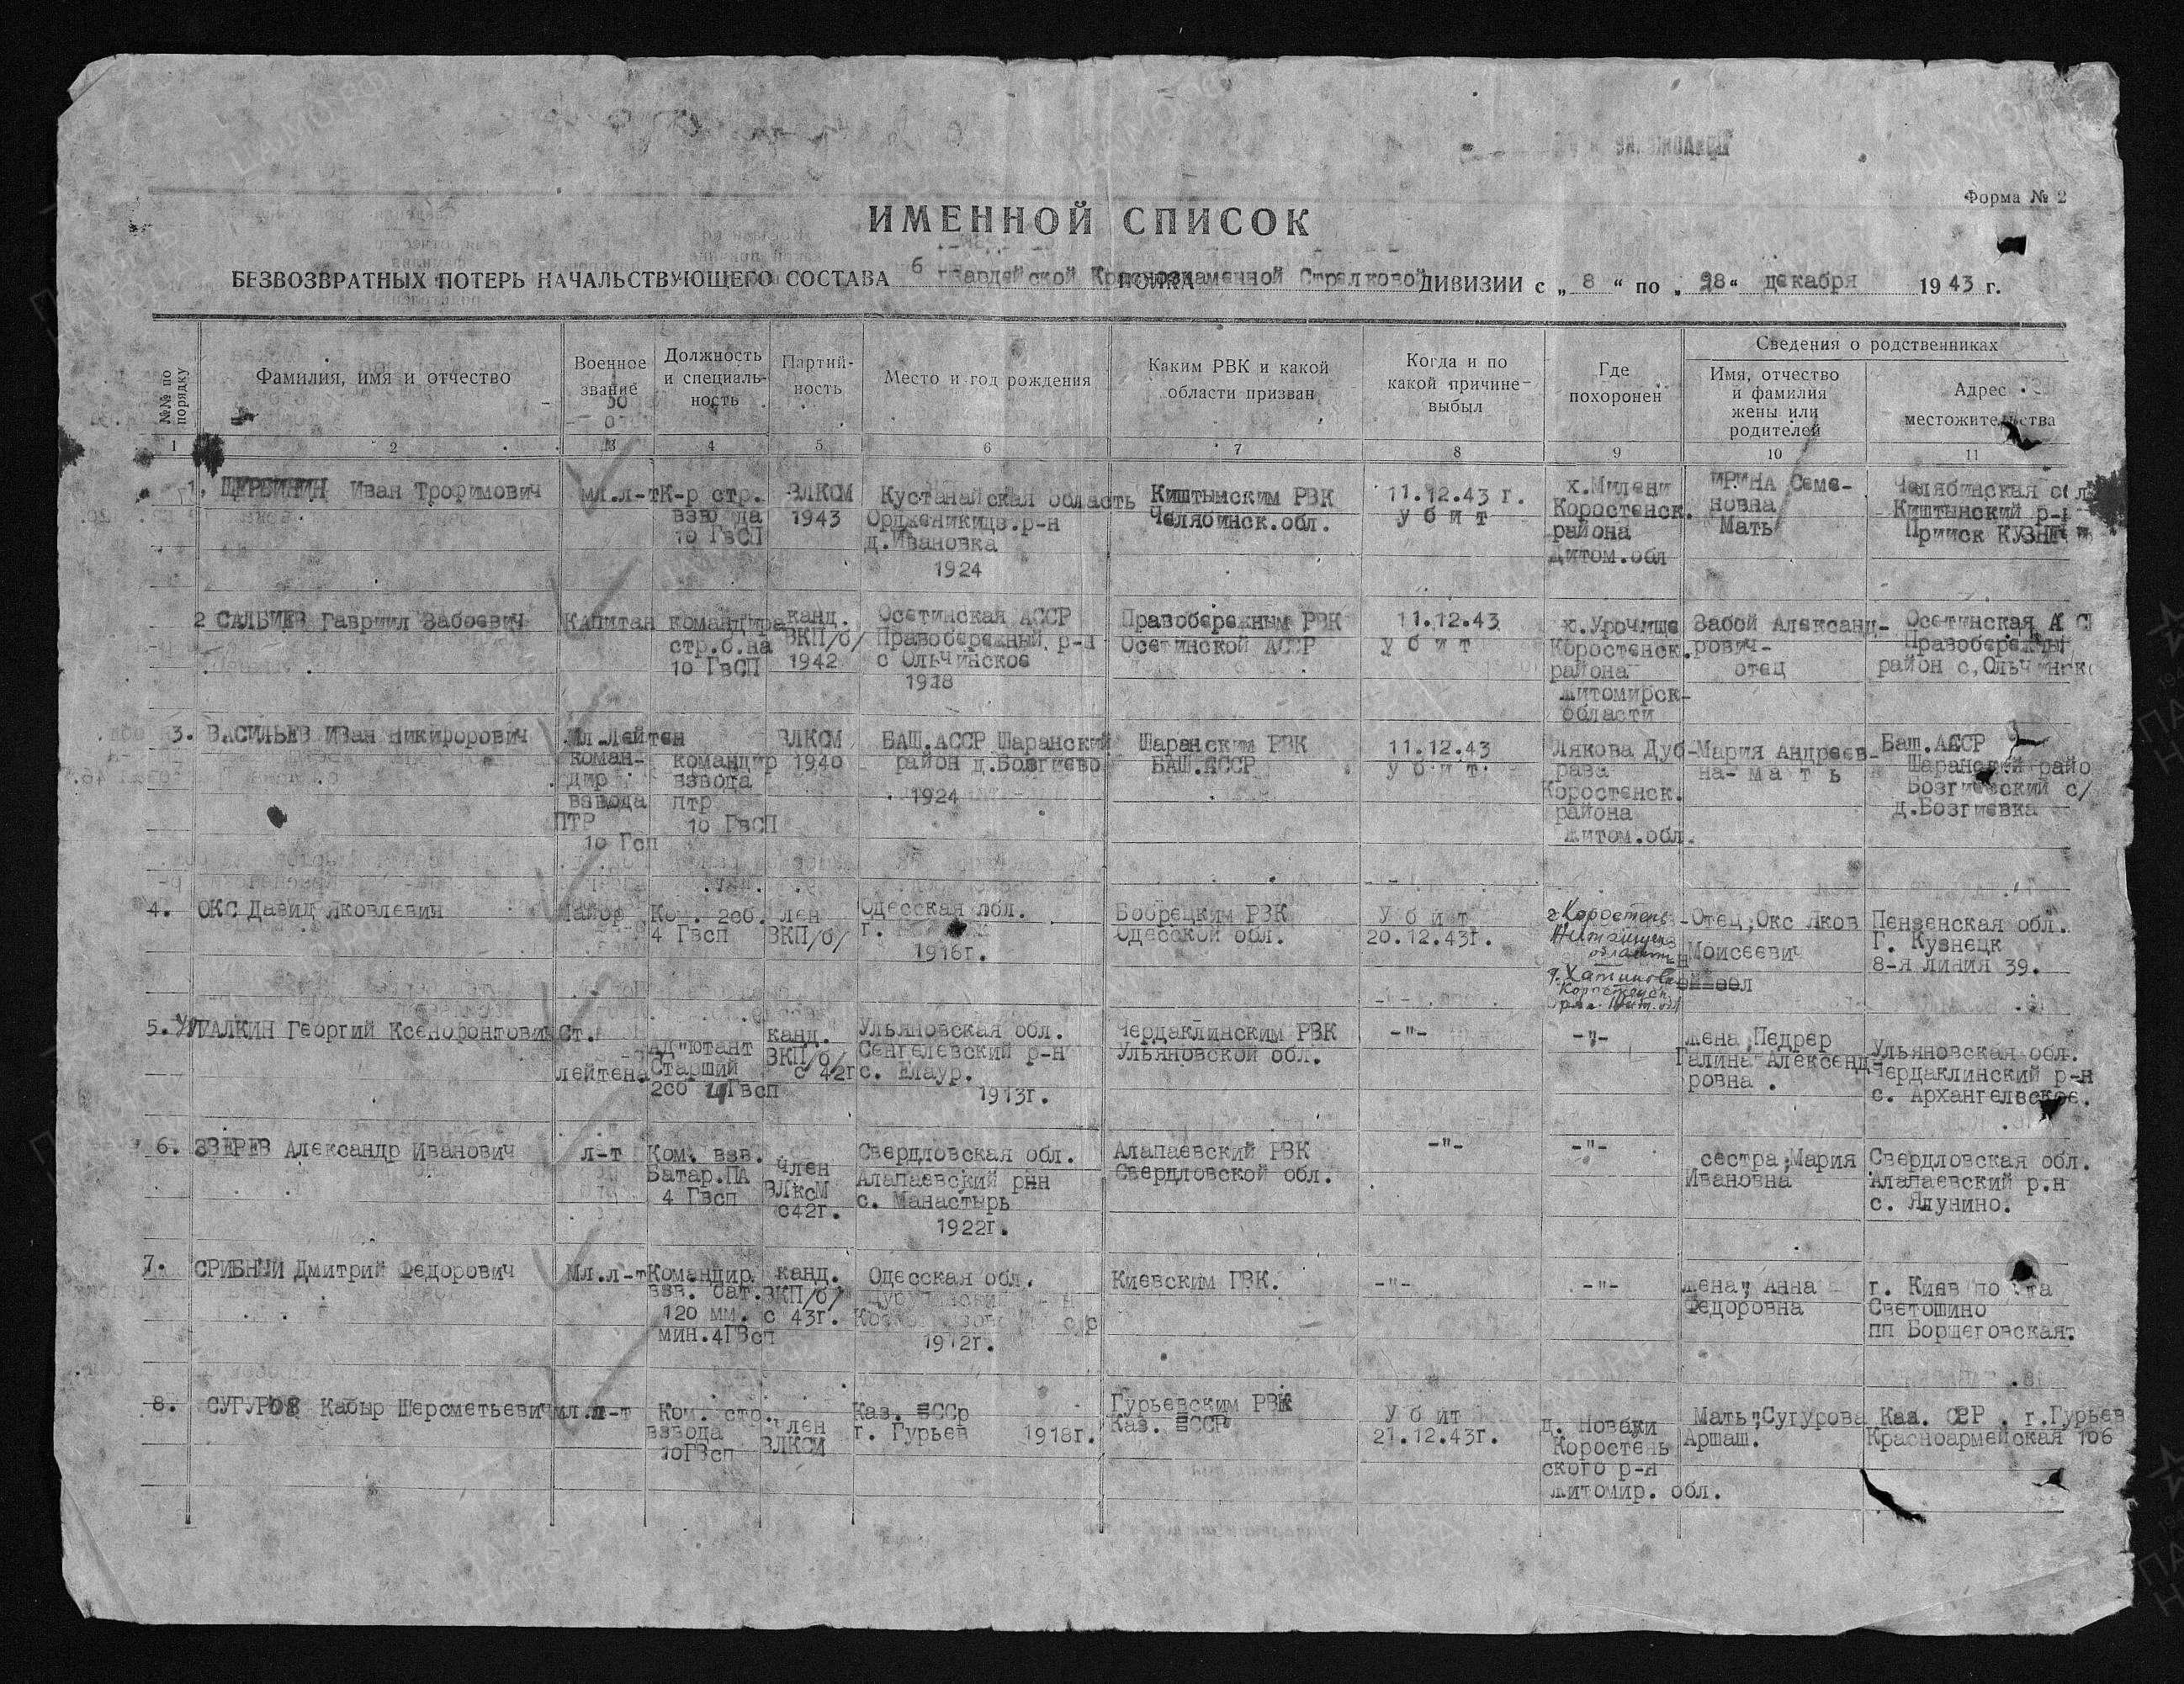 Форма № 2
ИМЕННОЙ СПИСОК
БЕЗВОЗВРАТНЫХ ПОТЕРЬ НАЧАЛЬСТВУЮЩЕГО СОСТАВА 6 гвардейской Краснознаменной Стрелковой ДИВИЗИИ с „ 8 “ по „ 28 “ декабря 1943 г.
№№ по порядку
Фамилия, имя и отчество
Военное звание
Должность и специаль-
ность
Партий-
ность
Место и год рождения
Каким РВК и какой
области призван
Когда и по
какой причине
выбыл
Где
похоронен
Сведения о родственниках
Имя, отчество
и фамилия
жены или
родителей
Адрес
местожительства
1 2 3 4 5 6 7 8 9 10 11
1. ЩЕРБИНИН Иван Трофимович
мл.л-т
К-р стр.
взвода
10 ГвСП
ВЛКСМ
1943
Кустанайская область
Ордженикидз.р-н
д.Ивановка
1924
Киштымским РВК
Челябинск.обл.
11.12.43 г.
убит
х.Милени
Коростенск.
района
Житом.обл
ИРИНА Семе-
новна
Мать
Челябинская
Киштынский
Прииск
2 САЛБИЕВ Гавриил Забоевич
Капитан
командира
стр.б.на
10 ГвСП
канд.
ВКП/б/
1942
Осетинская АССР
Правобережный р-н
с Ольчинское
1918
Правобережным РВК
Осетинской АССР
11.12.43
убит
х.Урочище
Коростенск.
района
Житомирск-
области
Забой Александ-
рович-
отец
Осетинская
район с.
3. ВАСИЛЬЕВ Иван Никифорович
Мл.Лейтен
коман-
дир
взвода
ПТР
10 Гсп
командир
взвода
птр
10 ГвСП
ВЛКСМ
1940
БАШ.АССР Шаранский
район д.Бозгиево
1924
Шаранским РВК
БАШ.АССР
11.12.43
убит.
Лякова Дуб-
рава
Коростенск.
района
Житом.обл.
Мария Андреев-
на- мать
Баш.АССР
Шаранский райо
Бозгиевский с/
д.Бозгиевка
4. ОКС Давид Яковлевич
Майор
Ком. 2сб.
4 Гвсп
лен
ВКП/б/
Одесская обл.
г.
1916г.
Бобрецким РВК
Одесской обл.
Убит
20.12.43г.
г Коростень
область
Отец,Окс Яков
Моисеевич
Пензенская обл.
Г. Кузнецк
8-я линия 39.
5. УГАЛКИН Георгий Ксенофонтович
Ст.
лейтена
Ад"ютант
Старший
2сб 4 Гвсп
канд.
ВКП/б/
с 42г
Ульяновская обл.
Сенгелевский р-н
с. Елаур.
1913г.
Чердаклинским РВК
Ульяновской обл.
-"-
-"-
Жена, Педрер
Галина Александ-
ровна.
Ульяновская обл.
Чердаклинский р-н
с. Архангельское.
6. ЗВЕРЕВ Александр Иванович
л-т
Ком. взв.
Батар.ПА
4 Гвсп
Член
ВЛксМ
с42г.
Свердловская обл.
Алапаевский рнн
с. Манастырь
1922г.
Алапаевский РВК
Свердловской обл.
-"-
-"-
сестра,Мария
Ивановна
Свердловская обл.
Алапаевский р.н
с. Ялунино.
7. СРИБНЫЙ Дмитрий Федорович
Мл.л-т
Командир
взв. бат.
120 мм.
мин.4ГВсп
канд.
ВКП/б/
с 43г.
Одесская обл.
1912г.
Киевским ГВК.
-"-
-"-
Жена, Анна
Федоровна
г. Киев
Светошино
пп Борщеговская.
8. СУГУРОВ Кабыр Шерсметьевич
мл.л-т
Ком. стр.
взвода
10ГВсп
Член
ВЛКСМ
Каз. ССр
г. Гурьев 1918г.
Гурьевским РВК
Каз. ССР
Убит
21.12.43г.
д. Новаки
Коростень
ского р-н
Житомир. обл.
Мать,Сугурова
Аршаш.
Каз. ССР. г.Гурьев
Красноармейская 106